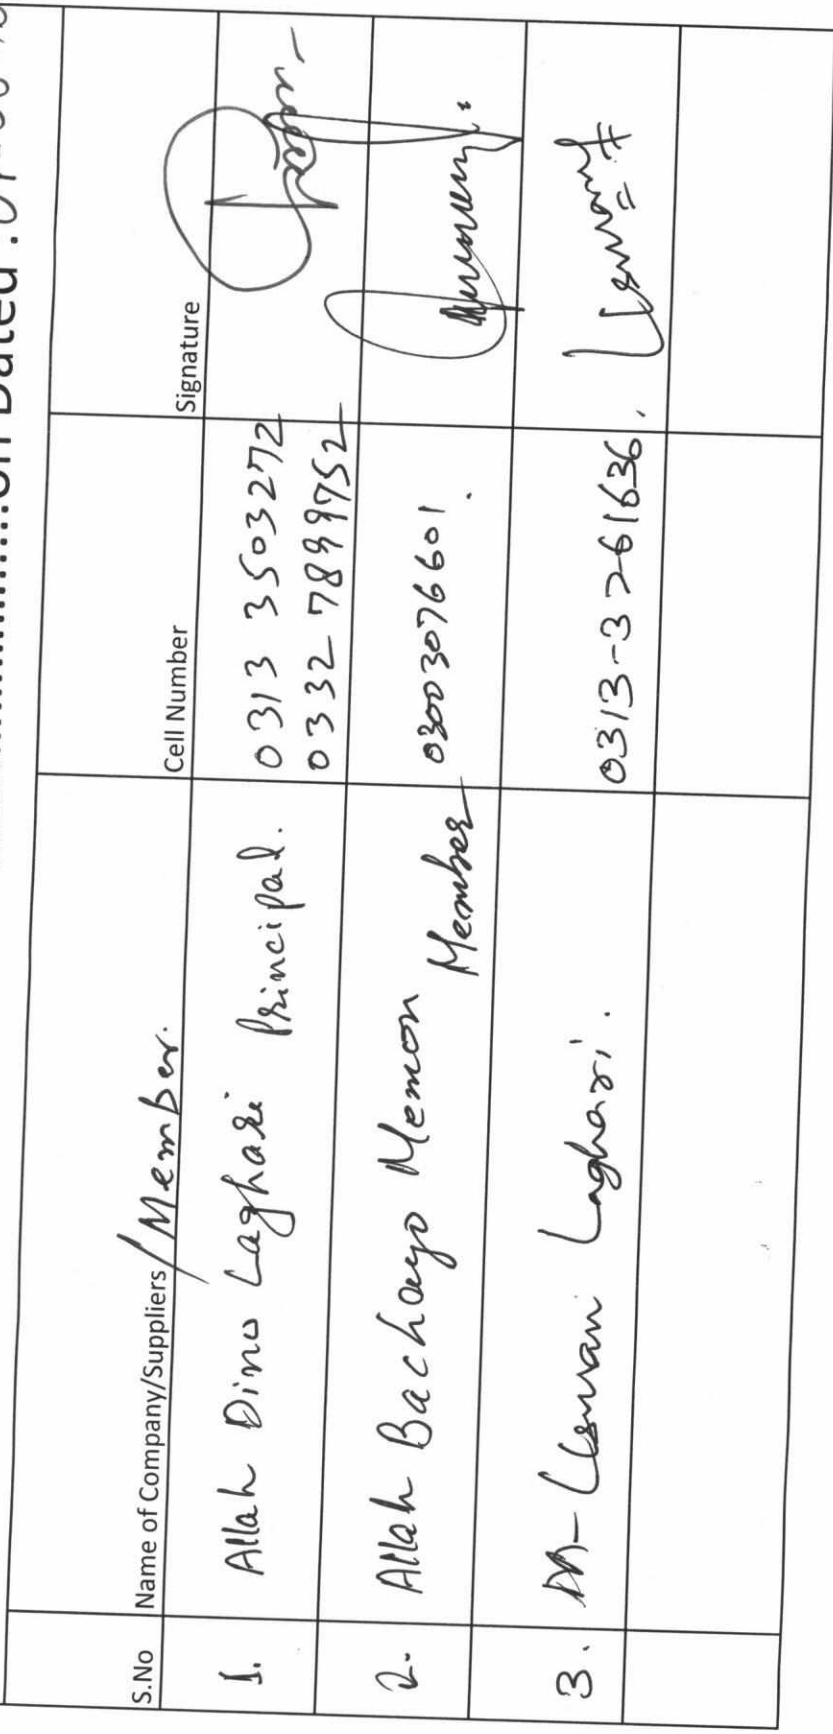 on Dated :
S.No Name of Company/Suppliers /Member. Cell Number Signature
1. Allah Dino Laghari Principal. 0313 3503272
0332 7899752
2. Allah Bachayo Memon Member 03003076601.
3. M- Usman Laghari. 0313-3261636. Usman